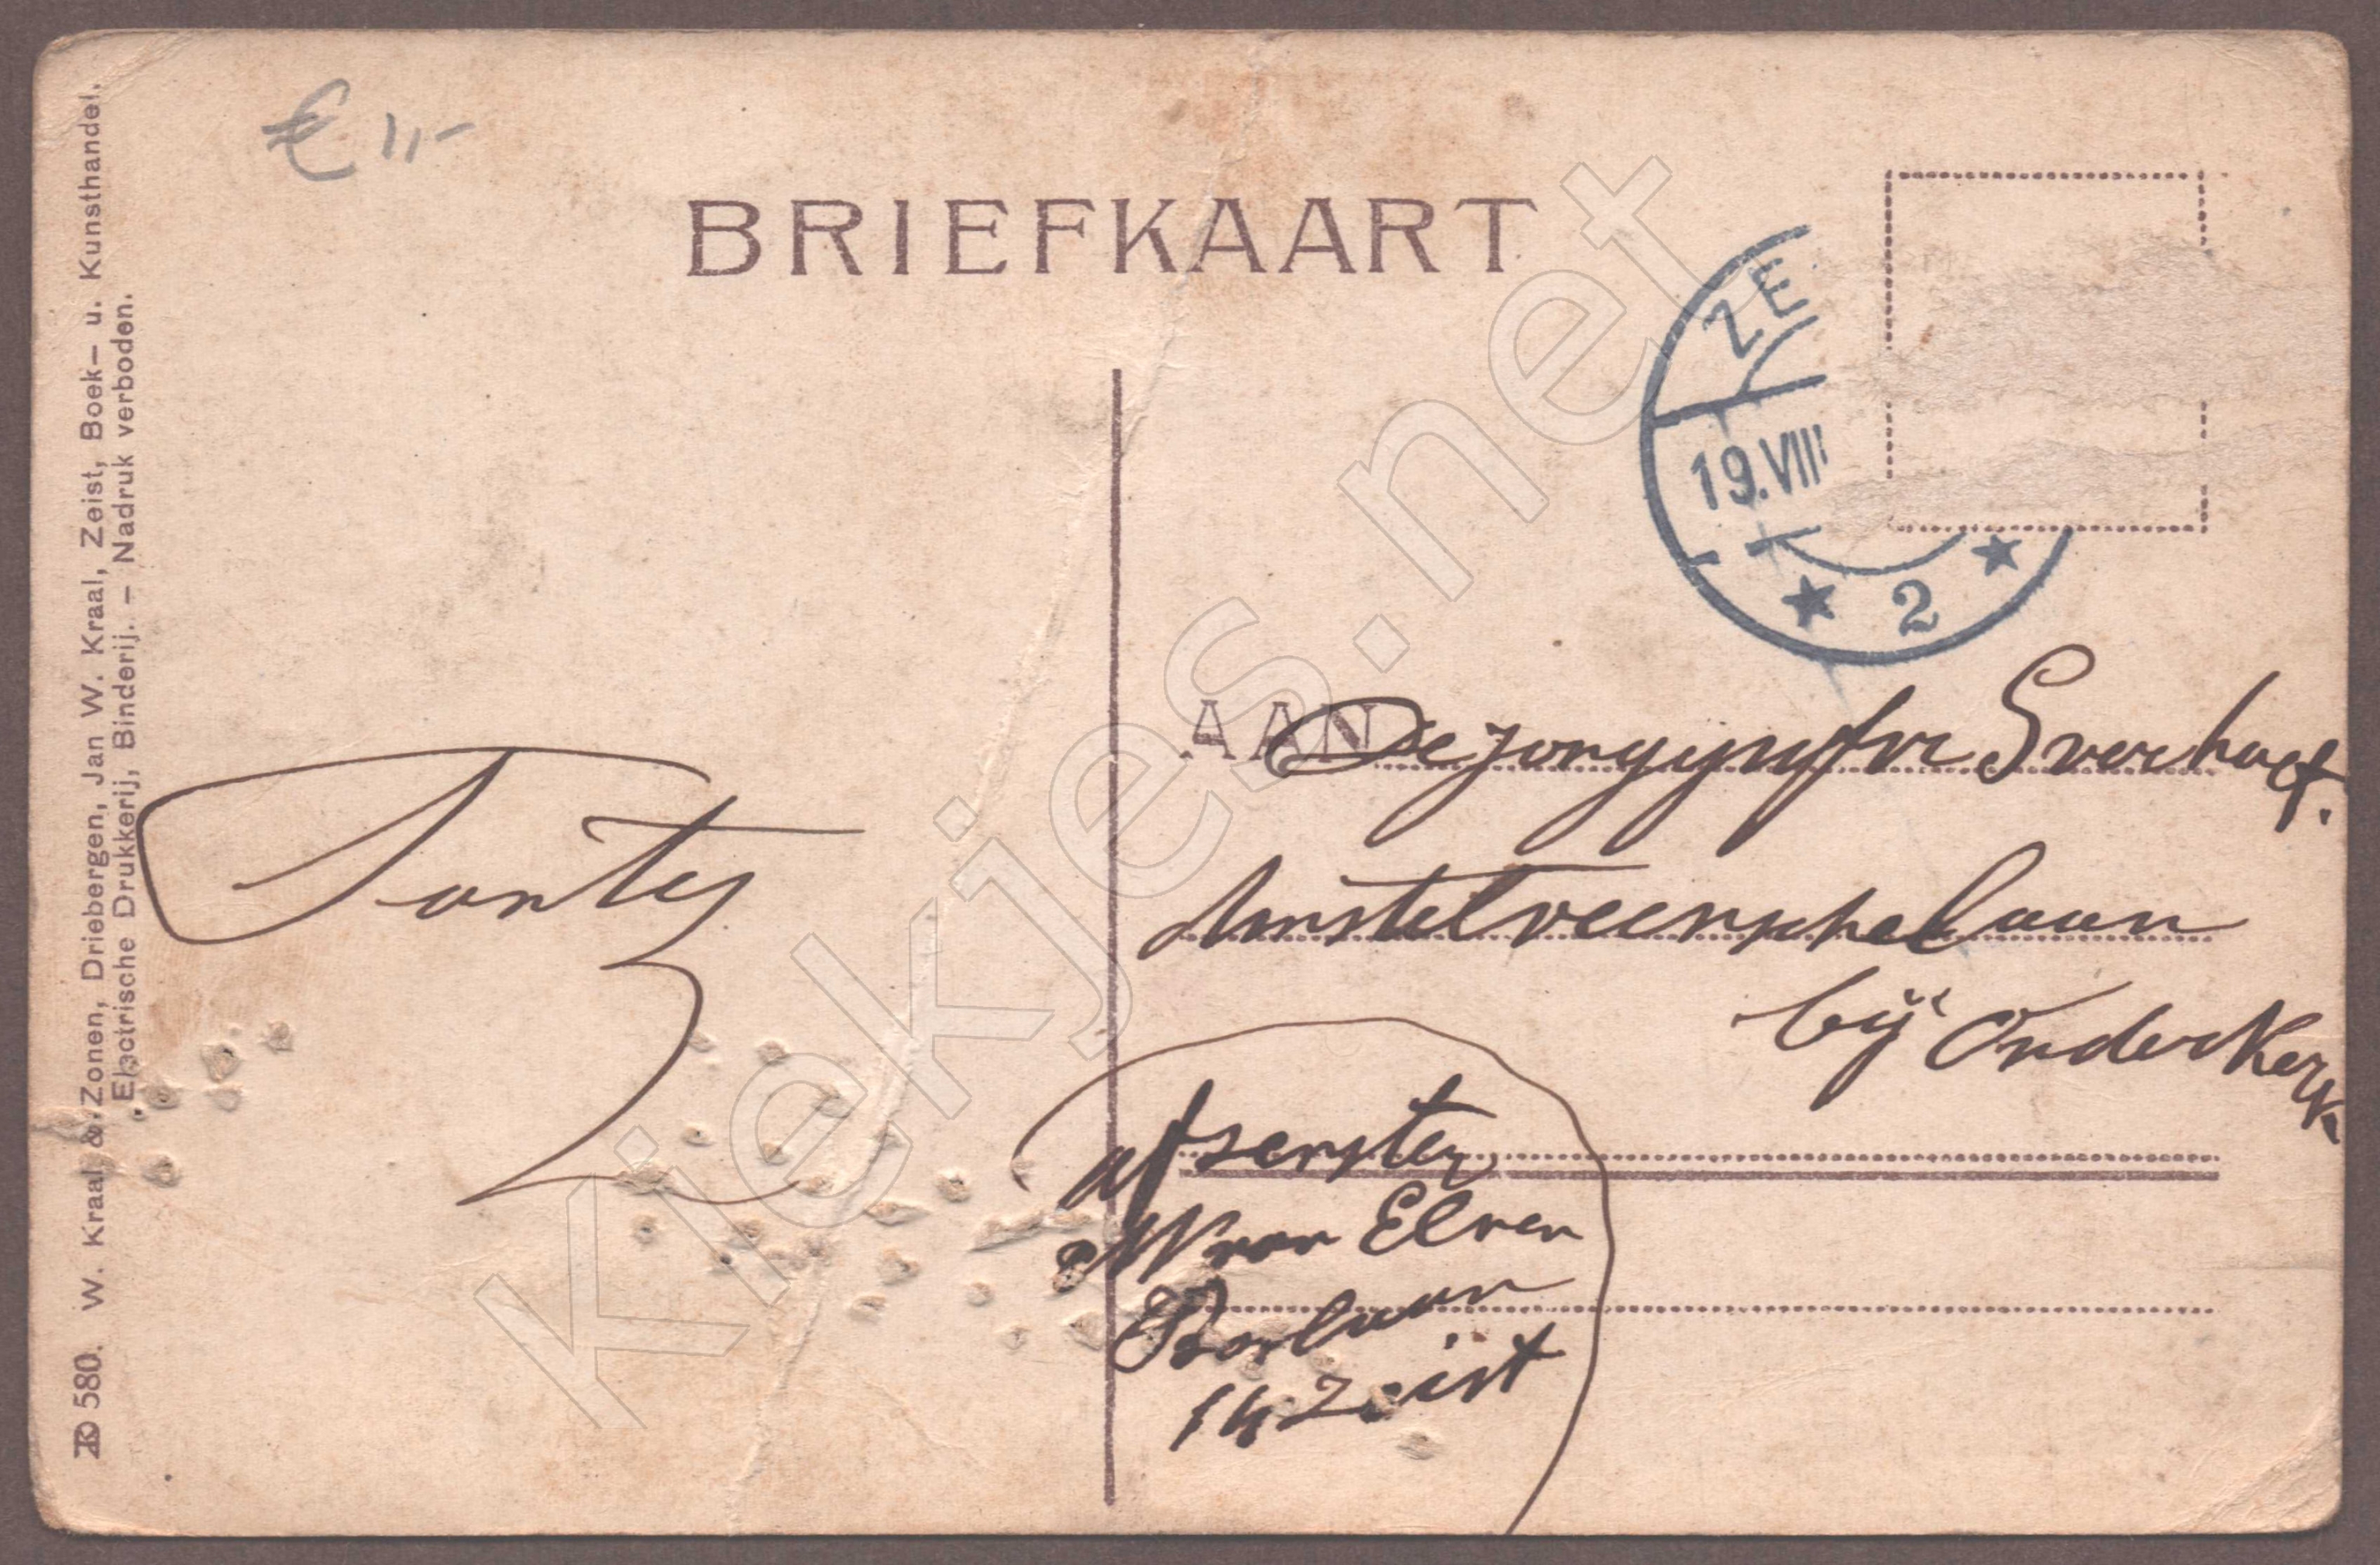 € 11,-
BRIEFKAART
ZE
19.VIII
2
AAN
De jongejufvr
Amstelveenschelaan
bij Ouderkerk
Tantes
afzenster
W van Elven
Boslaan
14 Zeist
580. W. Kraal & Zonen, Driebergen, Jan W. Kraal, Zeist, Boek- u. Kunsthandel.
Electrische Drukkerij, Binderij. - Nadruk verboden.
Kiekjes.net